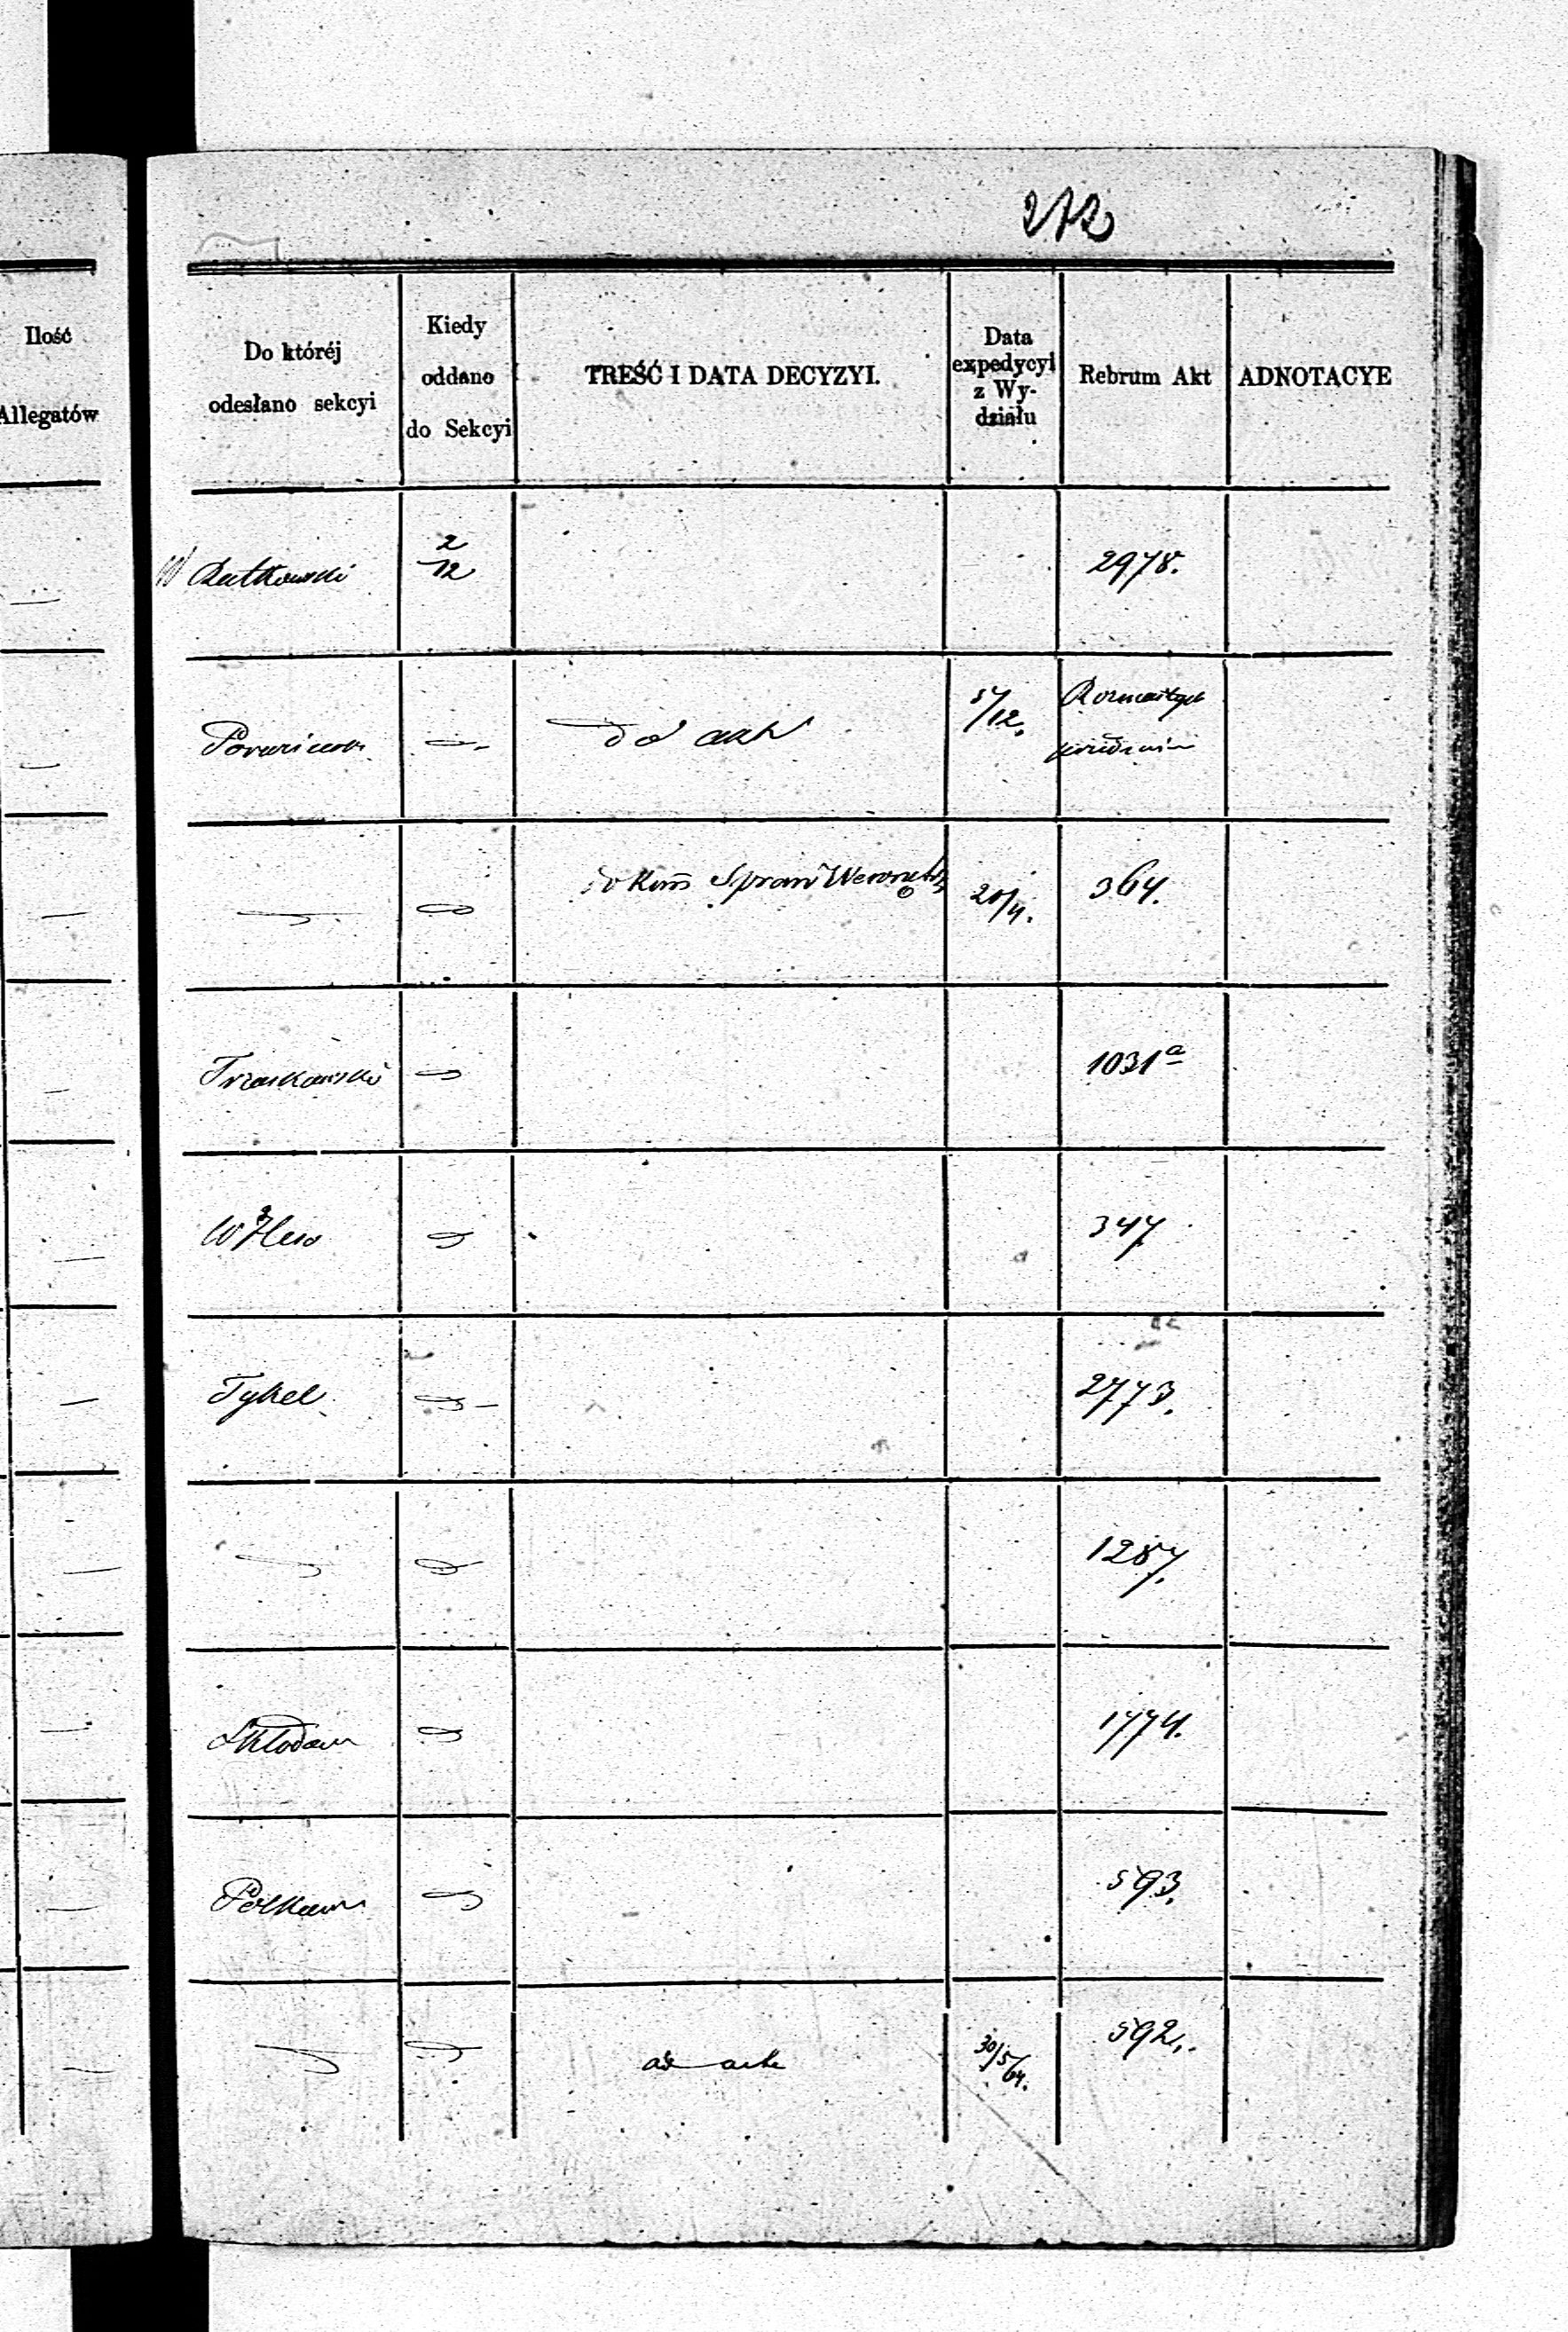 272
Ilość
Allegatów
Do któréj
odesłano sekcyi
Kiedy
oddano
do Sekcyi
TREŚĆ I DATA DECYZYI.
Data
expedycyi
z Wy-
działu
Rebrum Akt
ADNOTACYE
W Rutkowski
2/12
2978.
do akt
5/12.
Rozmaitych
do Kom Spraw Wewnętrz
20/4.
364.
Trzaskowski
1031a
347
Tykel
2773.
1287.
1774.
593.
ad acta
30/5/64.
592.